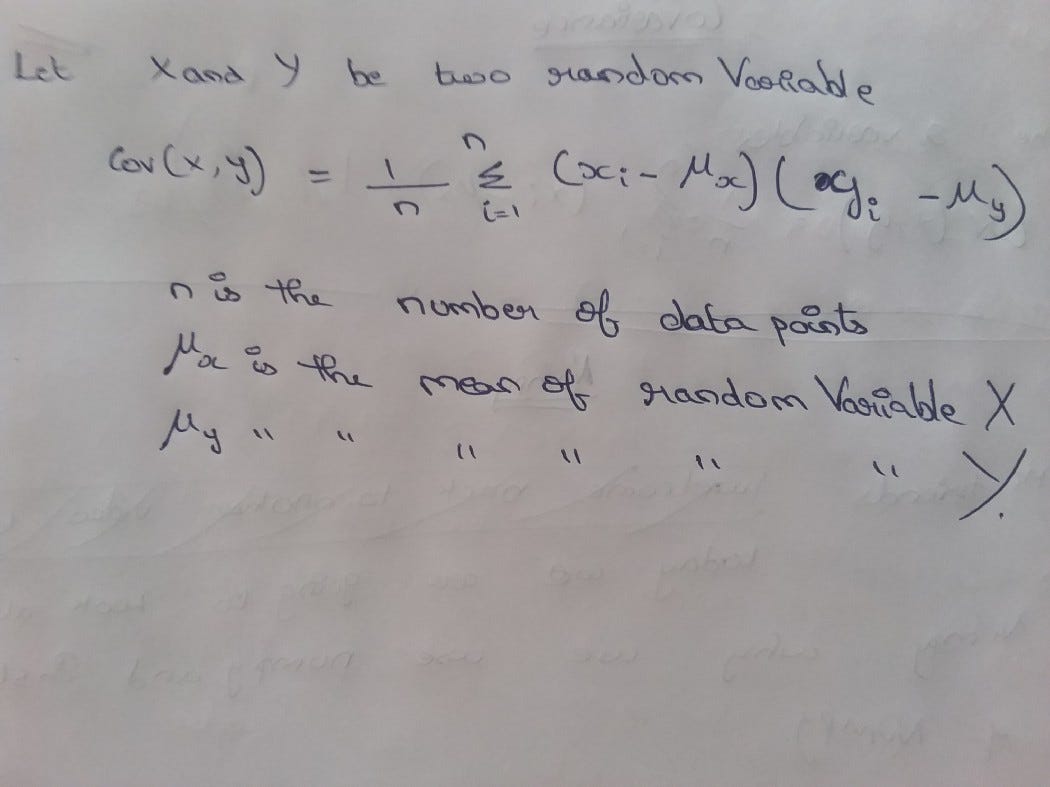 Let X and Y be two random Variable
Cov(x, y) = 1/n Σ i=1 n (xi - μx) (yi - μy)
n is the number of data points
μx is the mean of random Variable X
μy " " " " " " Y.